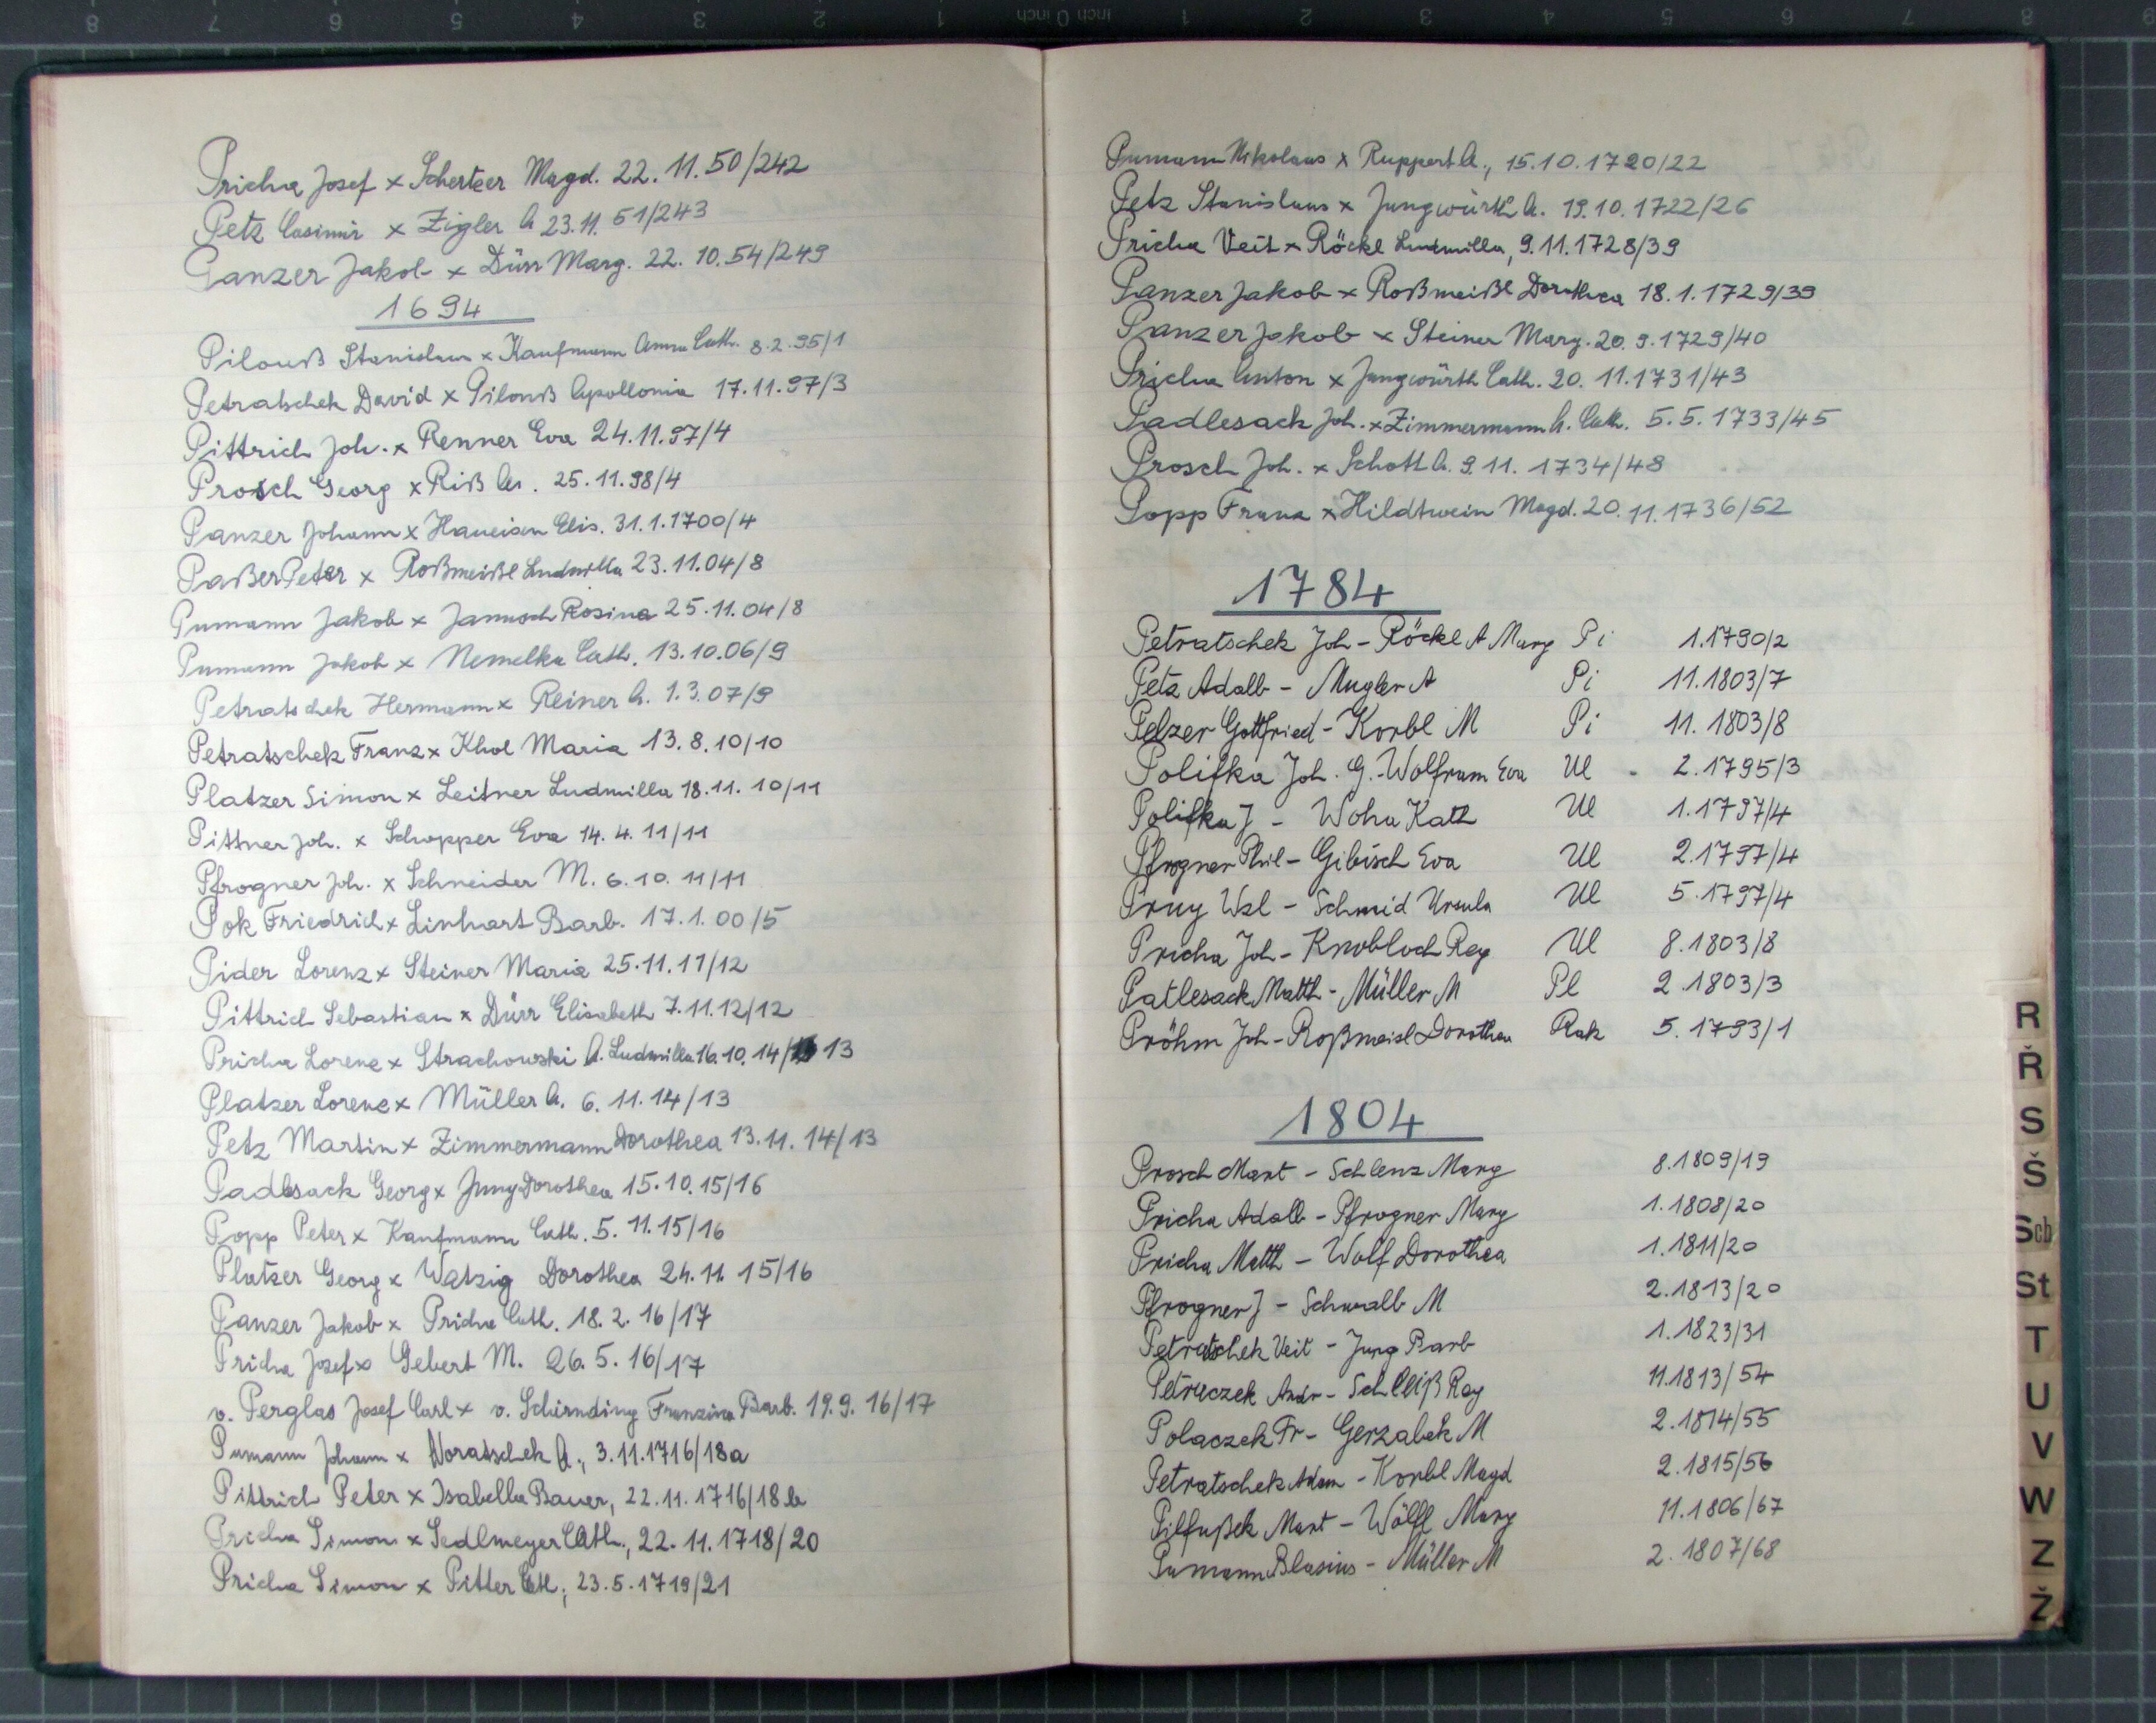 Pricha Josef x Scherteer Magd. 22. 11. 50/242
Petz Casimir x Zigler A 23. 11. 51/243
Panzer Jakob x Dürr Marg. 22. 10. 54/249
1694
Pilouß Stanislaus x Kaufmann Anna Cath. 8. 2. 95/1
Petratschek David x Pilouß Apollonia 17. 11. 97/3
Pittrich Joh. x Renner Eva 24. 11. 97/4
Prosch Georg x Riß An. 25. 11. 98/4
Panzer Johann x Haueisen Elis. 31. 1. 1700/4
Paßer Peter x Roßmeißl Ludmilla 23. 11. 04/8
Pumann Jakob x Janusch Rosina 25. 11. 04/8
Pumann Jakob x Nemelka Cath. 13. 10. 06/9
Petratschek Hermann x Reiner A. 1. 3. 07/9
Petratschek Franz x Khol Maria 13. 8. 10/10
Platzer Simon x Leitner Ludmilla 18. 11. 10/11
Pittner Joh. x Schopper Eva 14. 4. 11/11
Pfrogner Joh. x Schneider M. 6. 10. 11/11
Pok Friedrich x Linhart Barb. 17. 1. 00/5
Pider Lorenz x Steiner Maria 25. 11. 11/12
Pittrich Sebastian x Dürr Elisabeth 7. 11. 12/12
Pricha Lorenz x Strachowski A. Ludmilla 16. 10. 14/13
Platzer Lorenz x Müller A. 6. 11. 14/13
Petz Martin x Zimmermann Dorothea 13. 11. 14/13
Padlesack Georg x Jung Dorothea 15. 10. 15/16
Popp Peter x Kaufmann Cath. 5. 11. 15/16
Platzer Georg x Watzig Dorothea 24. 11. 15/16
Panzer Jakob x Pricha Cath. 18. 2. 16/17
Pricha Josef x Gebert M. 26. 5. 16/17
v. Perglas Josef Carl x v. Schirnding Franzina Barb. 19. 9. 16/17
Pumann Johann x Woratschek A., 3. 11. 1716/18a
Pittrich Peter x Isabella Bauer, 22. 11. 1716/18b
Pricha Simon x Sedlmeyer Cath., 22. 11. 1718/20
Pricha Simon x Pitter Cath., 23. 5. 1719/21
Pumann Nikolaus x Ruppert A., 15. 10. 1720/22
Petz Stanislaus x Jungwürth A. 19. 10. 1722/26
Pricha Veit x Röckl Ludmilla, 9. 11. 1728/39
Panzer Jakob x Roßmeißl Dorothea 18. 1. 1729/39
Panzer Jakob x Steiner Marg. 20. 9. 1729/40
Pricha Anton x Jungwürth Cath. 20. 11. 1731/43
Padlesack Joh. x Zimmermann A. Cath. 5. 5. 1733/45
Prosch Joh. x Schott A. 9. 11. 1734/48
Popp Franz x Hildtwein Magd. 20. 11. 1736/52
1784
Petratschek Joh - Röckl A Marg Pi 1. 1790/2
Petz Adalb - Mugler A Pi 11. 1803/7
Pelzer Gottfried - Korbl M Pi 11. 1803/8
Polifka Joh. G. - Wolfram Eva Ul - 2. 1795/3
Polifka J - Woha Kath Ul 1. 1797/4
Pfrogner Phil - Gibisch Eva Ul 2. 1797/4
Pruy Wzl - Schmid Ursula Ul 5. 1797/4
Pricha Joh - Knobloch Reg Ul 8. 1803/8
Patlesack Matth - Müller M Pl 2. 1803/3
Pröhm Joh - Roßmeisl Dorothea Rak 5. 1793/1
1804
Prosch Mart - Schlenz Marg 8. 1809/19
Pricha Adalb - Pfrogner Marg 1. 1808/20
Pricha Matth - Wolf Dorothea 1. 1811/20
Pfrogner J - Schwalb M 2. 1813/20
Petratschek Veit - Jung Barb 1. 1823/31
Petraczek Andr - Schleiß Reg 11. 1813/54
Polaczek Fr - Gerzabek M 2. 1814/55
Petratschek Adam - Korbl Magd 2. 1815/56
Pilfußek Mart - Wölfl Marg 11. 1806/67
Pumann Blasius - Müller M 2. 1807/68
R
Ř
S
Š
Sch
St
T
U
V
W
Z
Ž